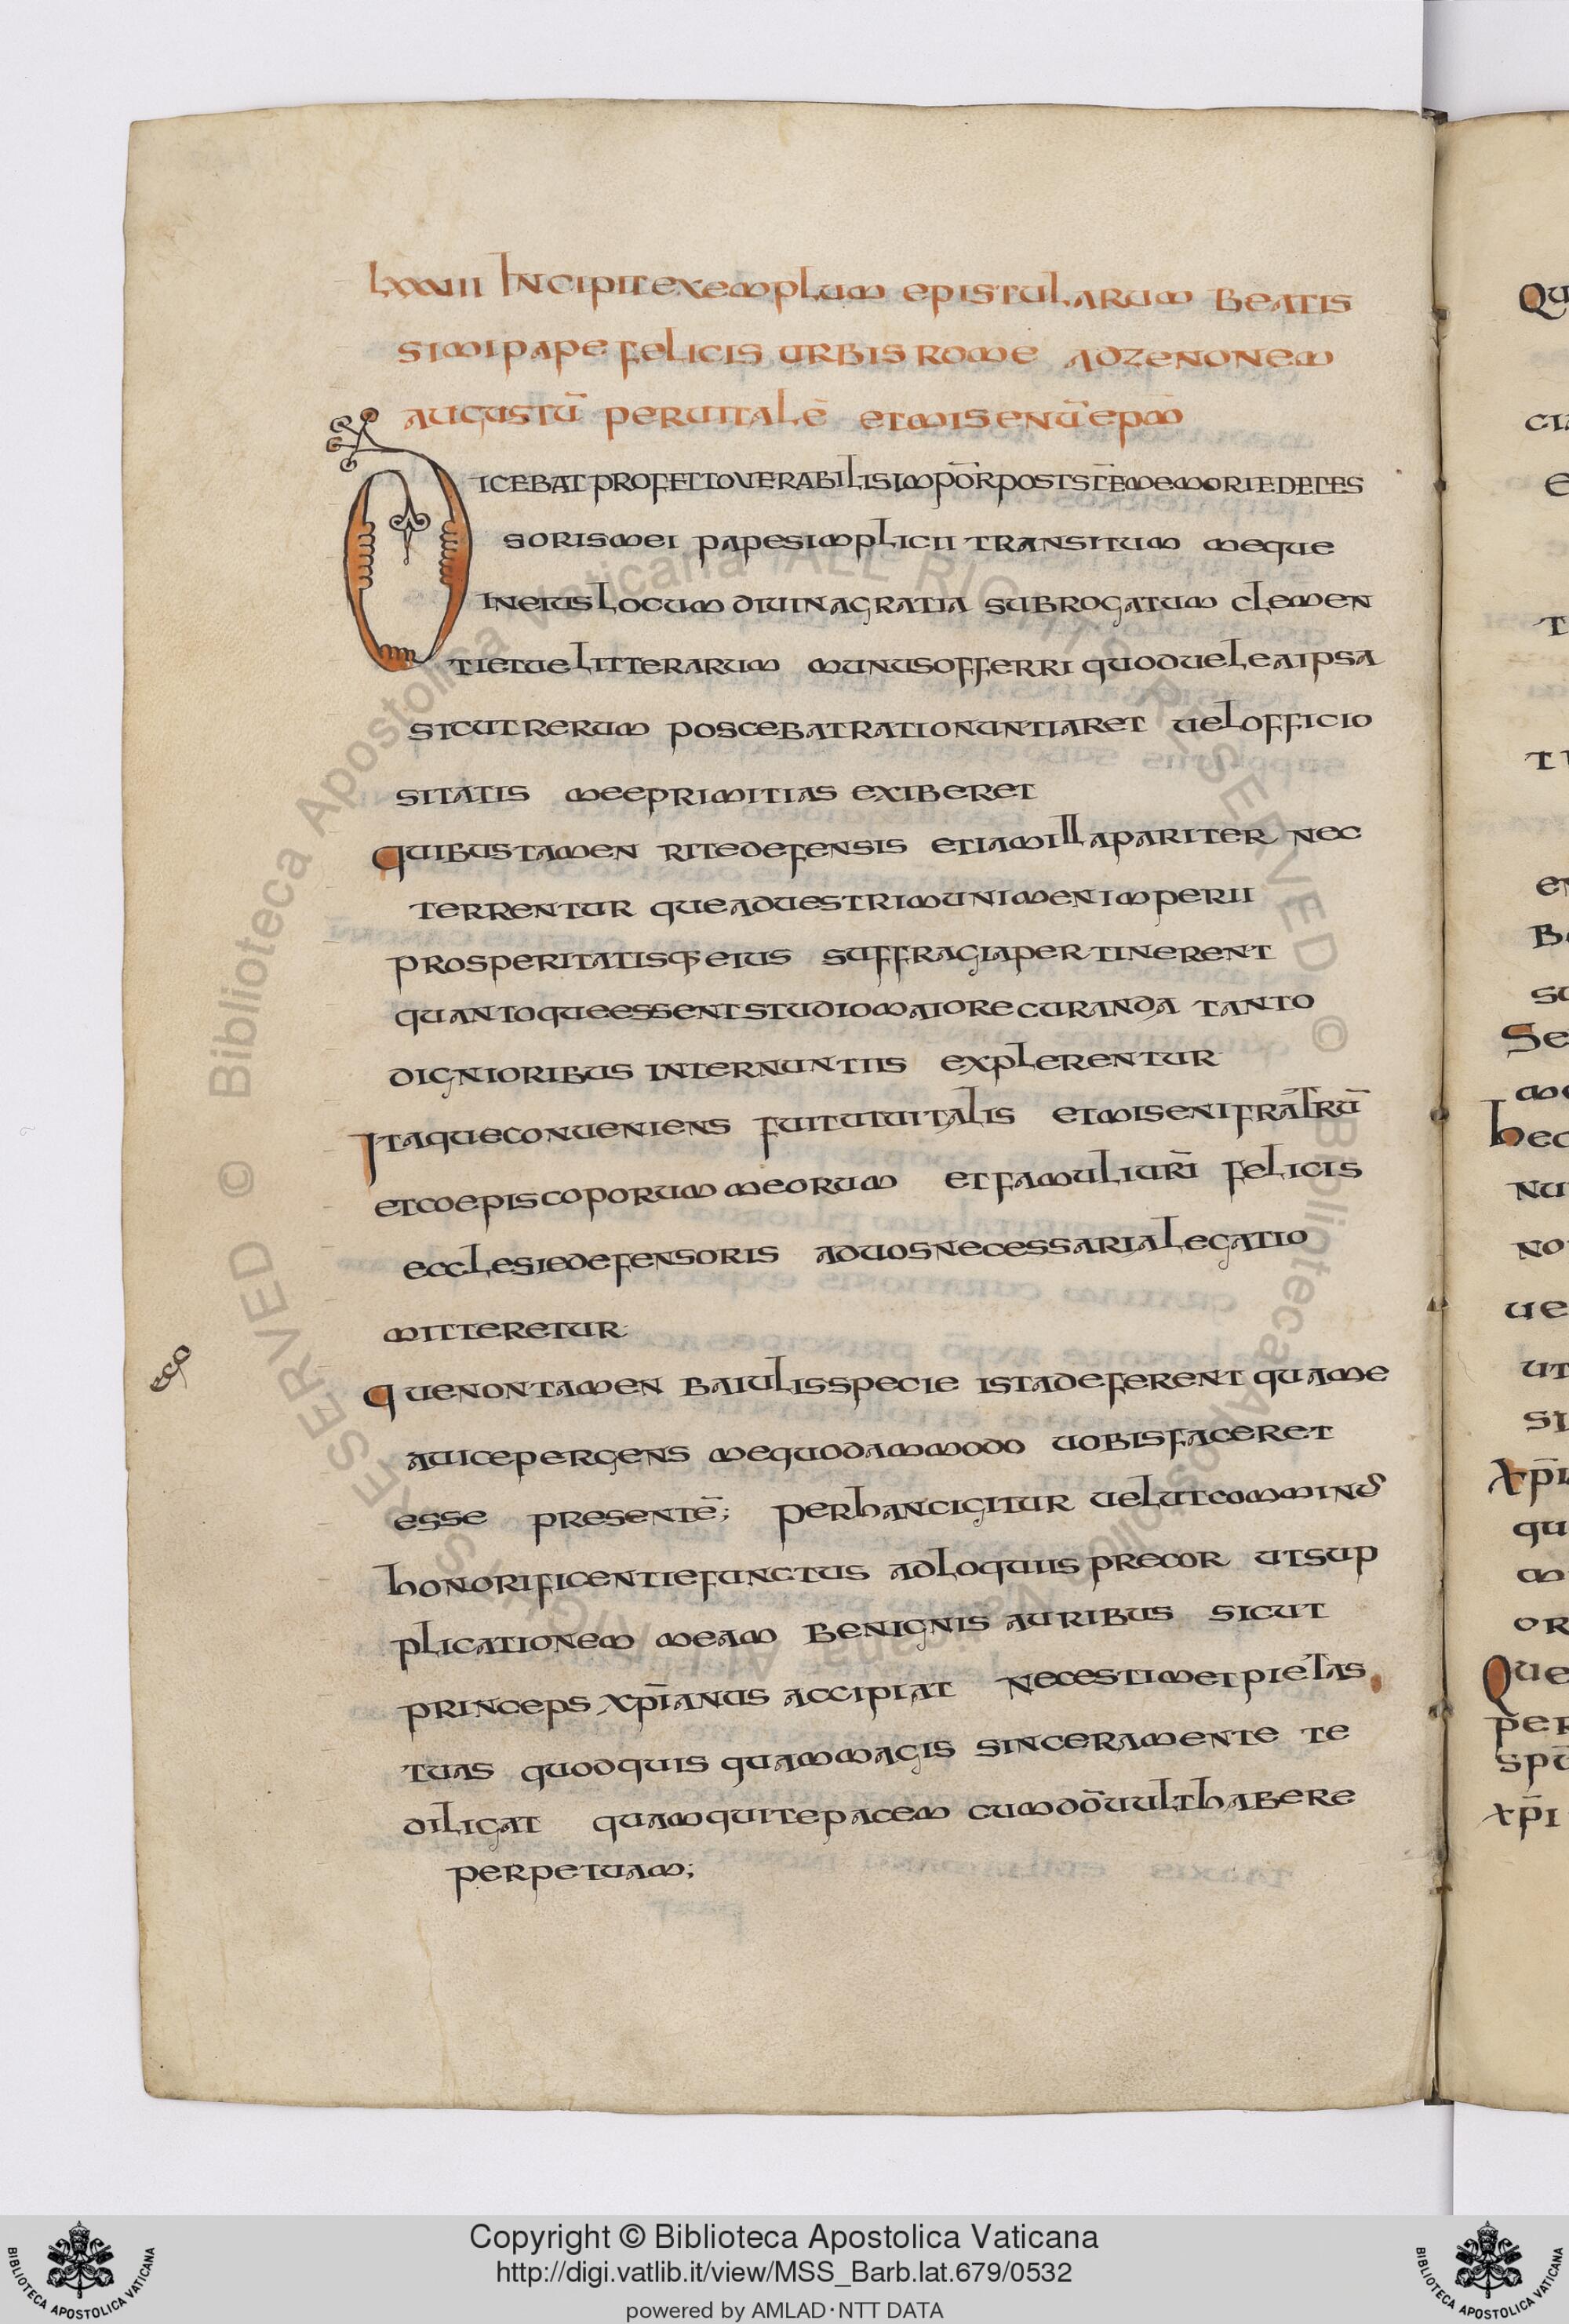 LXXXIII INCIPIT EXEMPLUM EPISTULARUM BEATIS
SIMI PAPE FELICIS URBIS ROME AD ZENONEM
AUGUSTŪ PER UITALĒ ET MISENŪ EPM̄
DICEBAT PROFETTO UERABILIS IMPŌR POST STĒ MEMORIE DETES
SORIS MEI PAPE SIMPLICII TRANSITUM MEQUE
IN EIUS LOCUM DIUINA GRATIA SUBROGATUM CLEMEN
TIE TUE LITTERARUM MUNUS OFFERRI QUOD UEL EA IPSA
SICUT RERUM POSCEBAT RATIO NUNTIARET UEL OFFICIO
SITATIS MEE PRIMITIAS EXIBERET
QUIBUS TAMEN RITE DEFENSIS ETIAM ILLA PARITER NEC
TERRENTUR QUE AD UESTRI MUNIMEN IMPERII
PROSPERITATISQ· EIUS SUFFRAGIA PERTINERENT
QUANTO QUE ESSENT STUDIO MAIORE CURANDA TANTO
DIGNIORIBUS INTERNUNTIIS EXPLERENTUR
ITAQUE CONUENIENS FUIT UT UITALIS ET MISENI FRATRŪ
ET COEPISCOPORUM MEORUM ET FAMULI URĪ FELICIS
ECCLESIE DEFENSORIS AD UOS NECESSARIA LEGATIO
MITTERETUR·
QUE NON TAMEN BAIULIS SPECIE ISTA DEFERENT QUA ME
A UICE PERGENS ME QUODAMMODO UOBIS FACERET
ESSE PRESENTĒ; PER HANC IGITUR UELUT COMMINUS
HONORIFICENTIE FUNCTUS ADLOQUIIS PRECOR UT SUP
PLICATIONEM MEAM BENIGNIS AURIBUS SICUT
PRINCEPS XPĪANUS ACCIPIAT NEC ESTIMET PIETAS
TUAS QUOD QUIS QUAM MAGIS SINCERA MENTE TE
DILIGAT QUAM QUI TE PACEM CUM DŌ UULT HABERE
PERPETUAM;
QU
E
T
SU
SE
HEC
NU
NO
UE
UT
SI
XP̄I
QU
OR
QUE
PER
XP̄I
© Biblioteca Apostolica Vaticana ALL RIGHTS RESERVED © Biblioteca Apostolica Vaticana ALL RIGHTS RESERVED
BIBLIOTECA APOSTOLICA VATICANA
Copyright © Biblioteca Apostolica Vaticana
http://digi.vatlib.it/view/MSS_Barb.lat.679/0532
powered by AMLAD·NTT DATA
BIBLIOTECA APOSTOLICA VATICANA